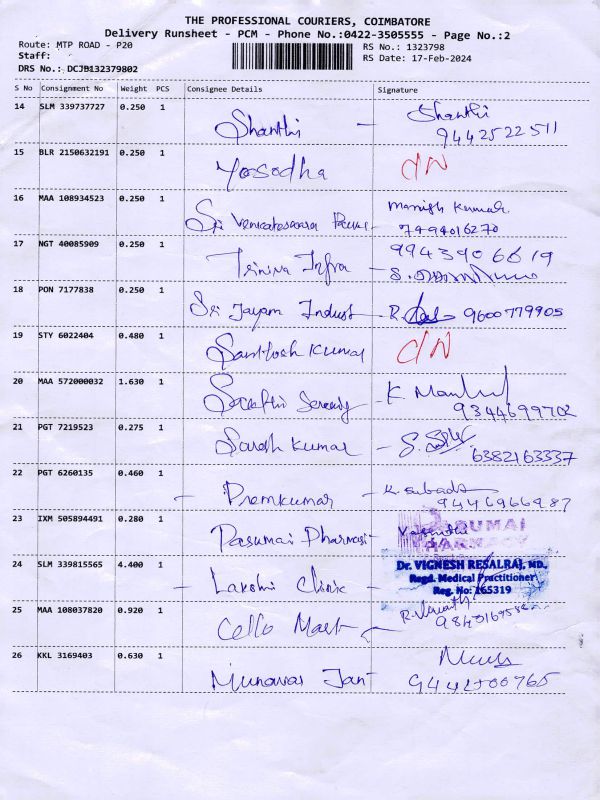 THE PROFESSIONAL COURIERS, COIMBATORE
Delivery Runsheet - PCM - Phone No.:0422-3505555 - Page No.:2
Route: MTP ROAD - P20 RS No.: 1323798
Staff: RS Date: 17-Feb-2024
DRS No.: DCJB132379802
S No Consignment No Weight PCS Consignee Details Signature
14 SLM 339737727 0.250 1 Shanthi - Shanthi
9442522511
15 BLR 2150632191 0.250 1 Yosodha
16 MAA 108934523 0.250 1 Sri Venkateswara Manish Kumar
7494016270
17 NGT 40085909 0.250 1 Triniva Infra - 9943906619
18 PON 7177838 0.250 1 Sri Jayam Indust - 9600779905
19 STY 6022404 0.480 1 Santhosh Kumar
20 MAA 572000032 1.630 1 - K.
9344699702
21 PGT 7219523 0.275 1 Sarath Kumar -
6382163337
22 PGT 6260135 0.460 1 - Premkumar -
9446966987
23 IXM 505894491 0.280 1 Pasumai Pharmasi - PASUMAI
PHARMACY
24 SLM 339815565 4.400 1 - Lakshmi Clinic - Dr. VIGNESH RESALRAJ, MD.,
Regd. Medical Practitioner
Reg. No: 165319
25 MAA 108037820 0.920 1 Cello Mart -
26 KKL 3169403 0.630 1 Munavar Jan -
9442500765